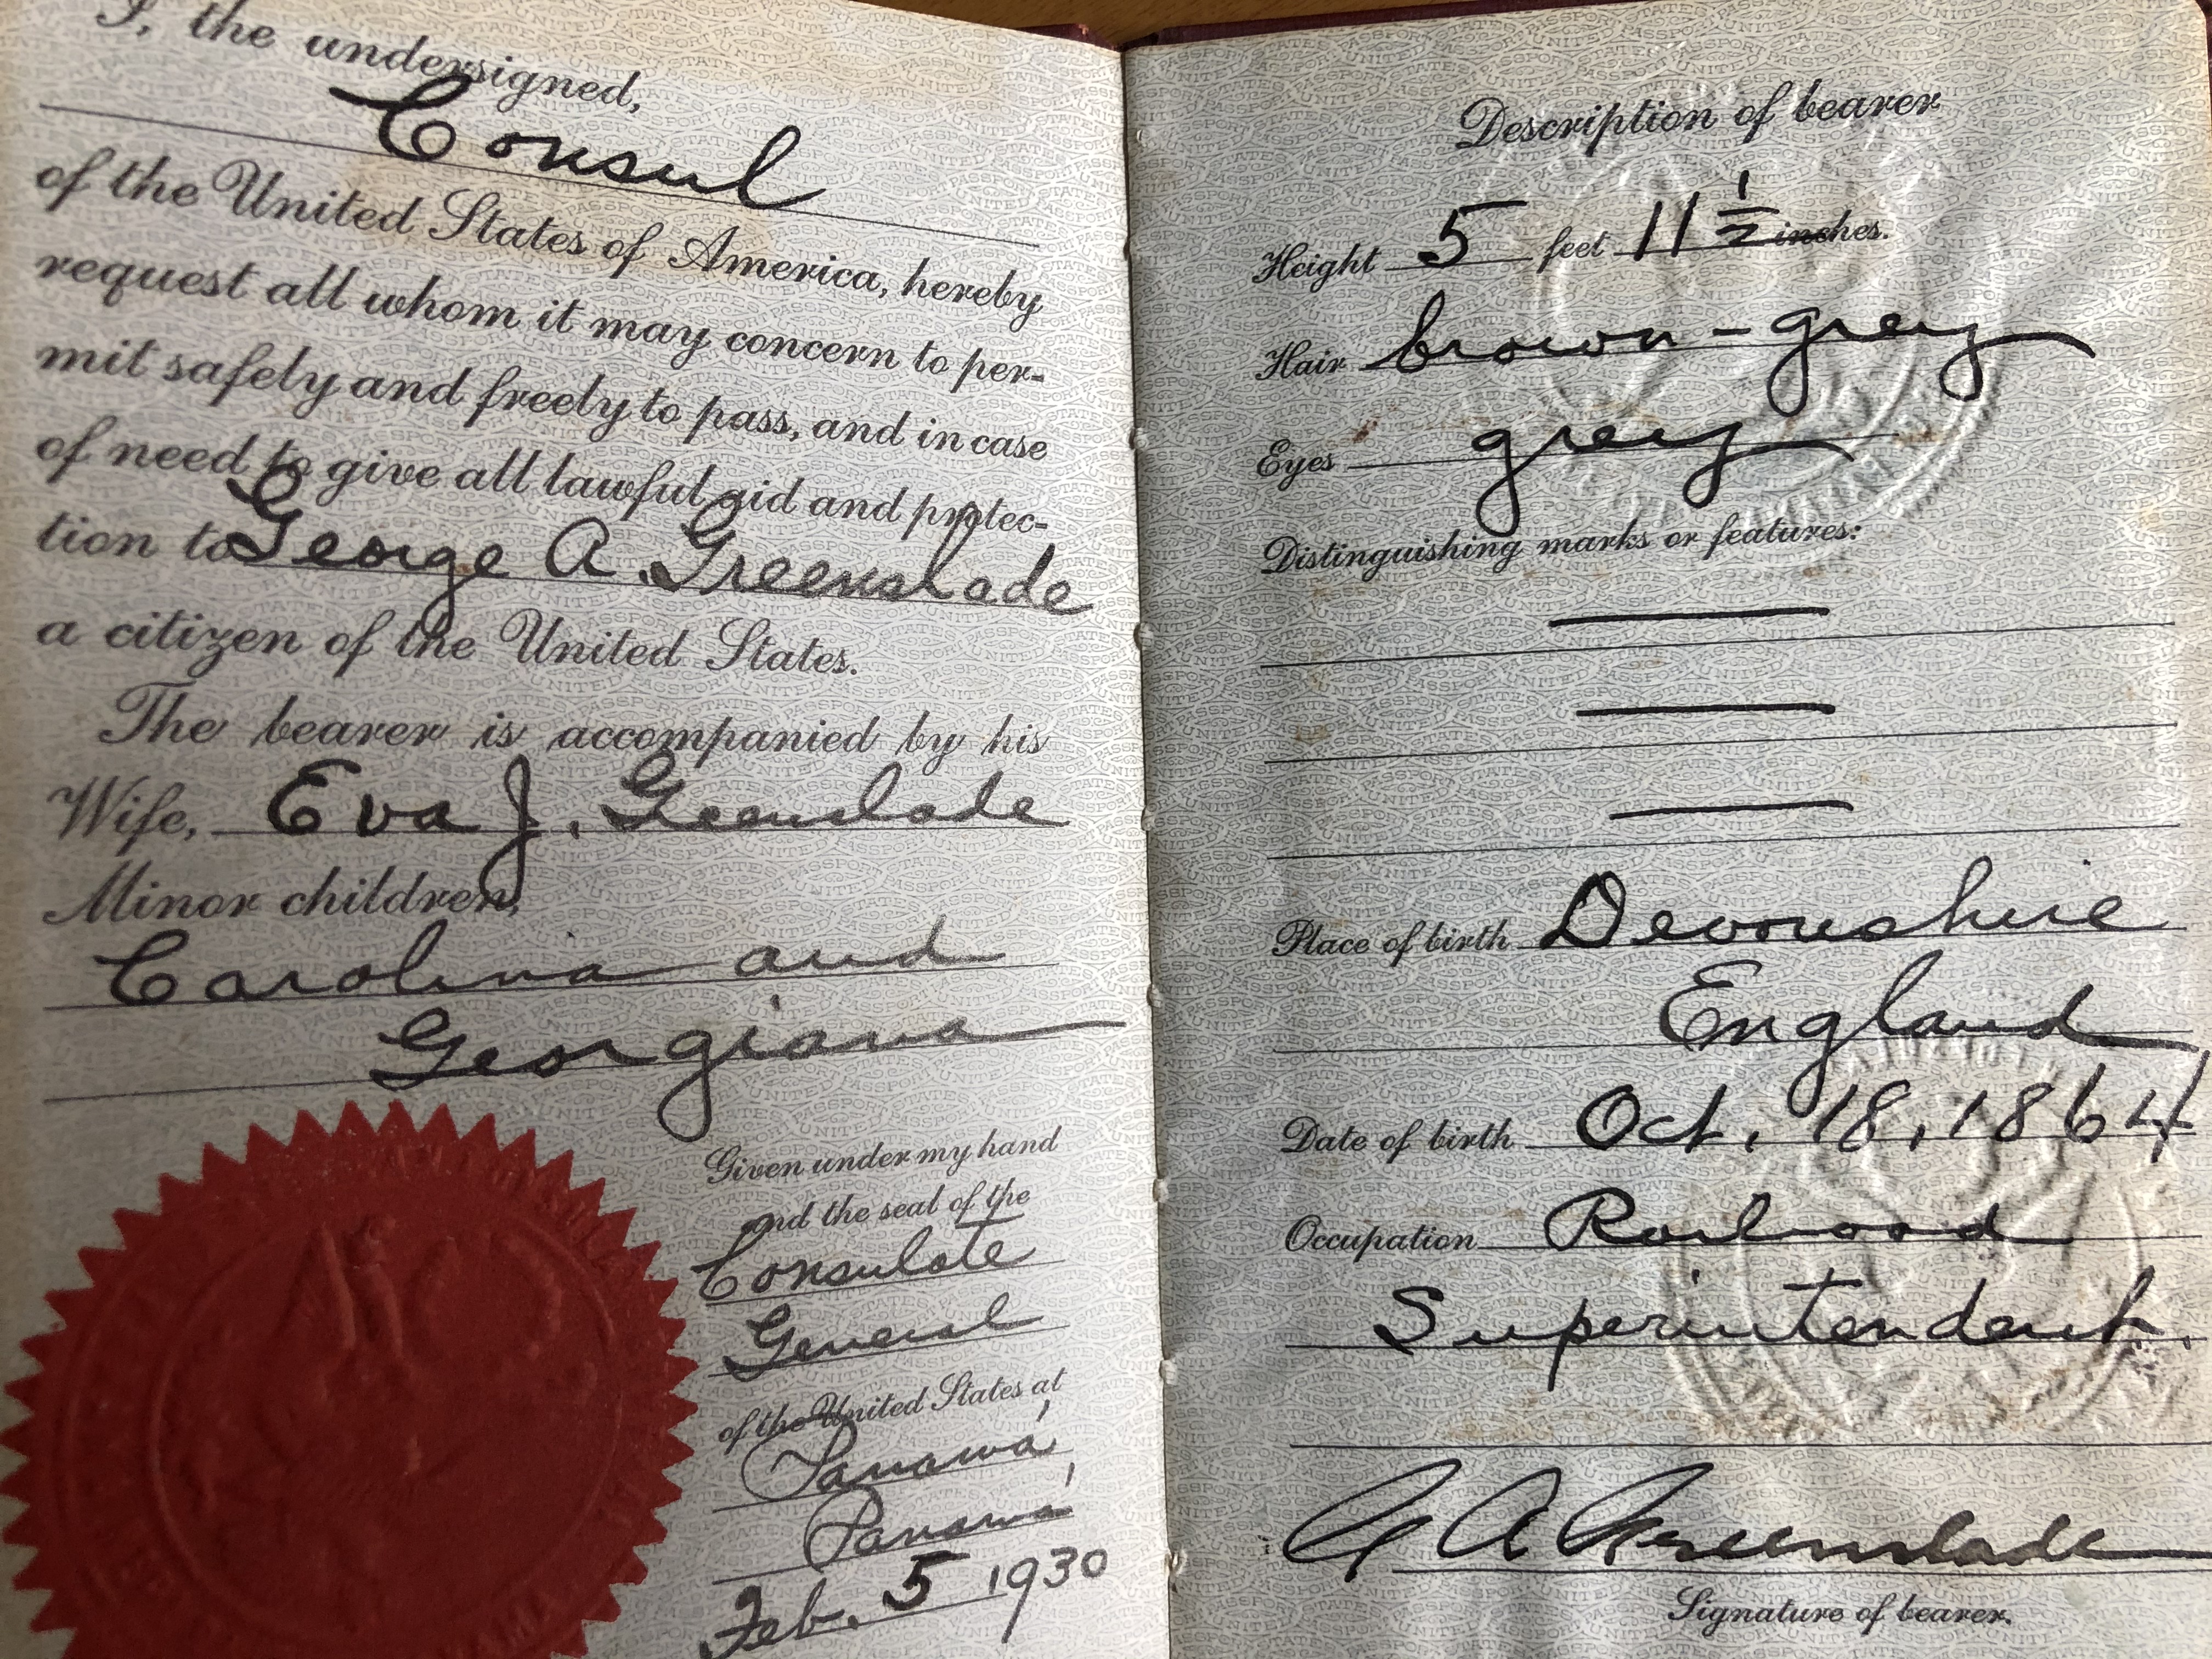 I, the undersigned,
Consul
of the United States of America, hereby
request all whom it may concern to per-
mit safely and freely to pass, and in case
of need to give all lawful aid and protec-
tion to George A. Greenslade
a citizen of the United States.
The bearer is accompanied by his
Wife, Eva J. Greenslade
Minor children,
Carolina and
Georgiana
Given under my hand
and the seal of the
Consulate
General
of the United States at
Panamá,
Panamá
Feb. 5 1930
Description of bearer
Height 5 feet 11 1/2 inches.
Hair brown-grey
Eyes grey
Distinguishing marks or features:
Place of birth Devonshire
England
Date of birth Oct. 18, 1864
Occupation Railroad
Superintendent.
G A Greenslade
Signature of bearer.